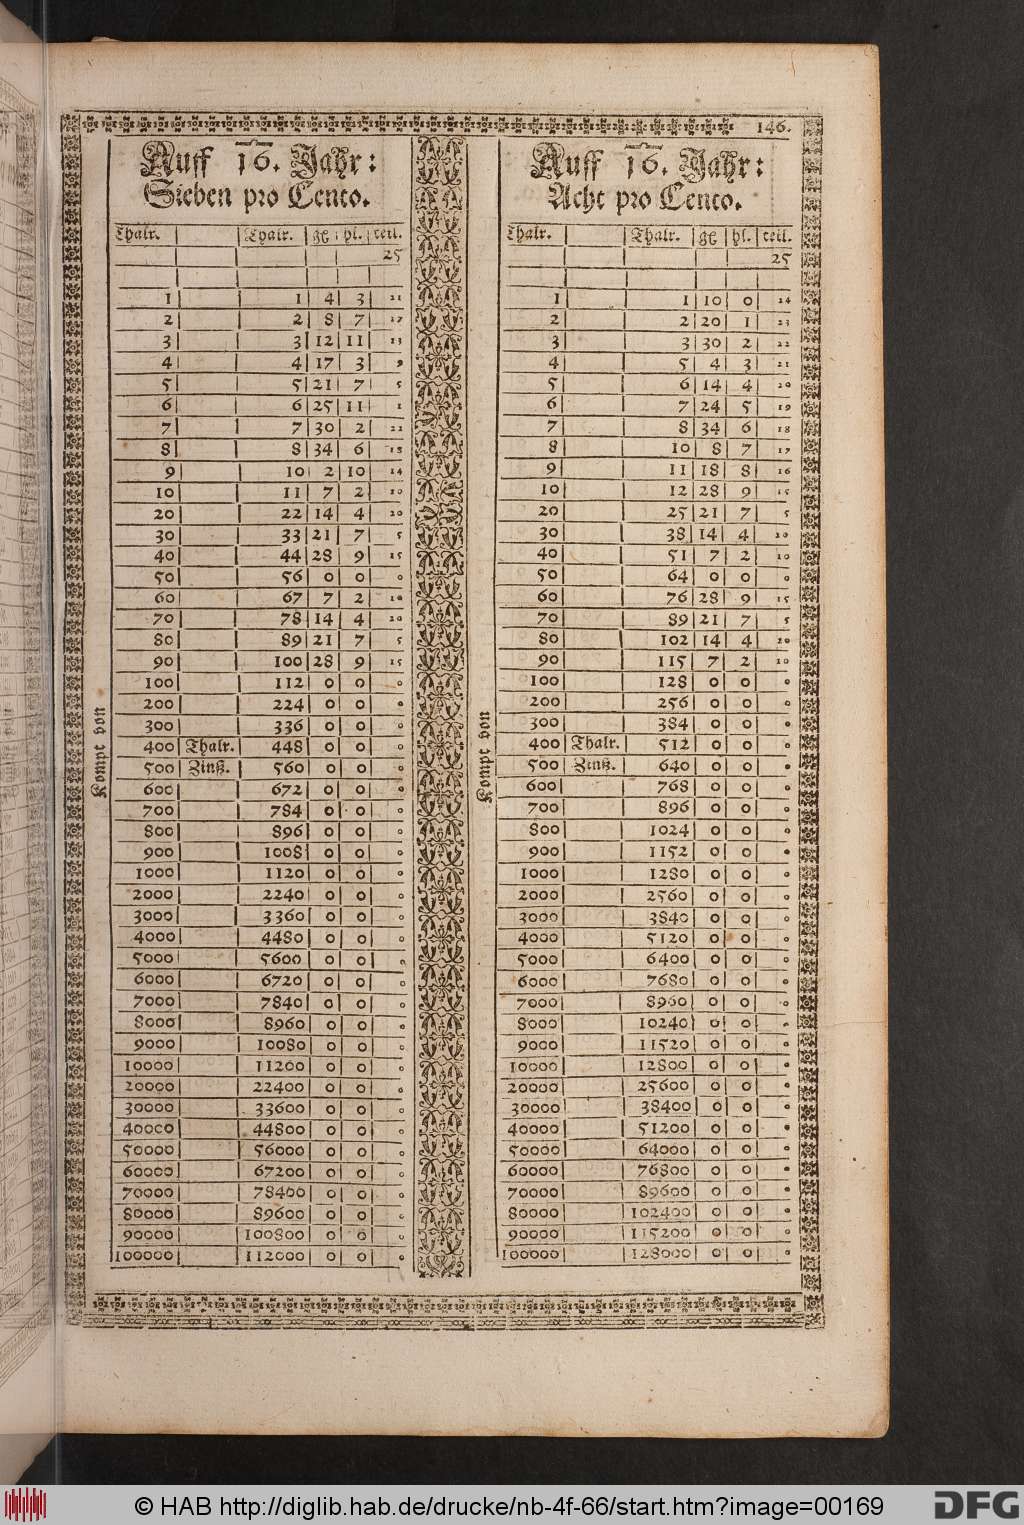 146.
Auff 16. Jahr:
Sieben pro Cento.
Thalr. Thalr. gl hl. teil.
25
1 1 4 3 21
2 2 8 7 17
3 3 12 11 13
4 4 17 3 9
5 5 21 7 5
6 6 25 11 1
7 7 30 2 22
8 8 34 6 18
9 10 2 10 14
10 11 7 2 10
20 22 14 4 20
30 33 21 7 5
40 44 28 9 15
50 56 0 0 0
60 67 7 2 10
70 78 14 4 20
80 89 21 7 5
90 100 28 9 15
100 112 0 0 0
200 224 0 0 0
300 336 0 0 0
400 Thalr. 448 0 0 0
500 Zinß. 560 0 0 0
600 672 0 0 0
700 784 0 0 0
800 896 0 0 0
900 1008 0 0 0
1000 1120 0 0 0
2000 2240 0 0 0
3000 3360 0 0 0
4000 4480 0 0 0
5000 5600 0 0 0
6000 6720 0 0 0
7000 7840 0 0 0
8000 8960 0 0 0
9000 10080 0 0 0
10000 11200 0 0 0
20000 22400 0 0 0
30000 33600 0 0 0
40000 44800 0 0 0
50000 56000 0 0 0
60000 67200 0 0 0
70000 78400 0 0 0
80000 89600 0 0 0
90000 100800 0 0 0
100000 112000 0 0 0
Kompt von
Auff 16. Jahr:
Acht pro Cento.
Thalr. Thalr. gl hl. teil.
25
1 1 10 0 24
2 2 20 1 23
3 3 30 2 22
4 5 4 3 21
5 6 14 4 20
6 7 24 5 19
7 8 34 6 18
8 10 8 7 17
9 11 18 8 16
10 12 28 9 15
20 25 21 7 5
30 38 14 4 20
40 51 7 2 10
50 64 0 0 0
60 76 28 9 15
70 89 21 7 5
80 102 14 4 20
90 115 7 2 10
100 128 0 0 0
200 256 0 0 0
300 384 0 0 0
400 Thalr. 512 0 0 0
500 Zinß. 640 0 0 0
600 768 0 0 0
700 896 0 0 0
800 1024 0 0 0
900 1152 0 0 0
1000 1280 0 0 0
2000 2560 0 0 0
3000 3840 0 0 0
4000 5120 0 0 0
5000 6400 0 0 0
6000 7680 0 0 0
7000 8960 0 0 0
8000 10240 0 0 0
9000 11520 0 0 0
10000 12800 0 0 0
20000 25600 0 0 0
30000 38400 0 0 0
40000 51200 0 0 0
50000 64000 0 0 0
60000 76800 0 0 0
70000 89600 0 0 0
80000 102400 0 0 0
90000 115200 0 0 0
100000 128000 0 0 0
Kompt von
© HAB http://diglib.hab.de/drucke/nb-4f-66/start.htm?image=00169
DFG